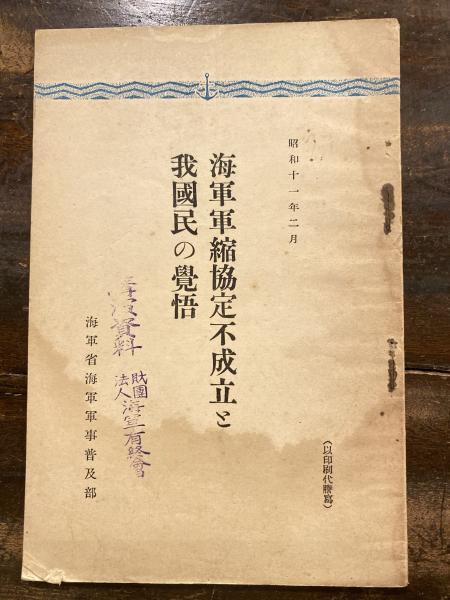 昭和十一年二月
海軍軍縮協定不成立と
我國民の覺悟
(以印刷代謄寫)
海軍省海軍軍事普及部
資料
財團
法人
海軍有終會